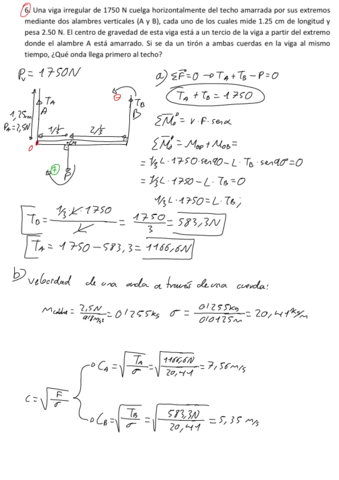 6. Una viga irregular de 1750 N cuelga horizontalmente del techo amarrada por sus extremos
mediante dos alambres verticales (A y B), cada uno de los cuales mide 1.25 cm de longitud y
pesa 2.50 N. El centro de gravedad de esta viga está a un tercio de la viga a partir del extremo
donde el alambre A está amarrado. Si se da un tirón a ambas cuerdas en la viga al mismo
tiempo, ¿Qué onda llega primero al techo?
Pv = 1750N
TA
A
TB
B
1/3
2/3
P
a) ΣF=0 → TA + TB - P=0
TA + TB = 1750
ΣM = r·F·senα
ΣM = MOP + MOB =
= 1/3 L · 1750 · sen90 - L · TB · sen90° = 0
= 1/3 L · 1750 - L · TB = 0
1/3 L · 1750 = L · TB;
TB = 1/3 · L · 1750 / L = 1750/3 = 583,3N
TA = 1750 - 583,3 = 1166,6N
b) Velocidad de una onda a través de una cuerda:
= 2,5N / 9,8 m/s² = 0'255kg σ = 0'255kg / 0'0125m = 20,41 kg/m
CA = √(TA/σ) = √(1166,6N / 20,41) = 7,56 m/s
C = √(F/σ)
CB = √(TB/σ) = √(583,3N / 20,41) = 5,35 m/s